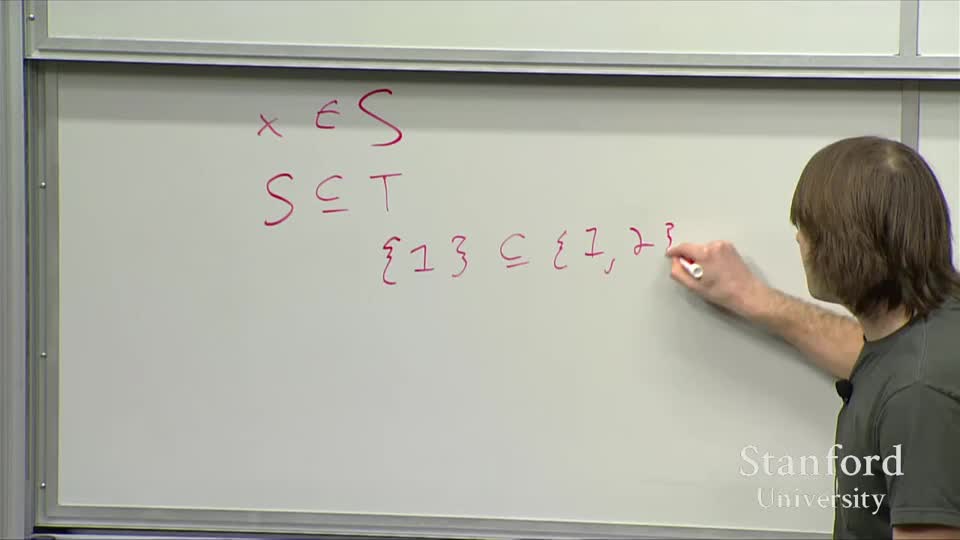 x ∈ S
S ⊆ T
{1} ⊆ {1, 2}
Stanford
University